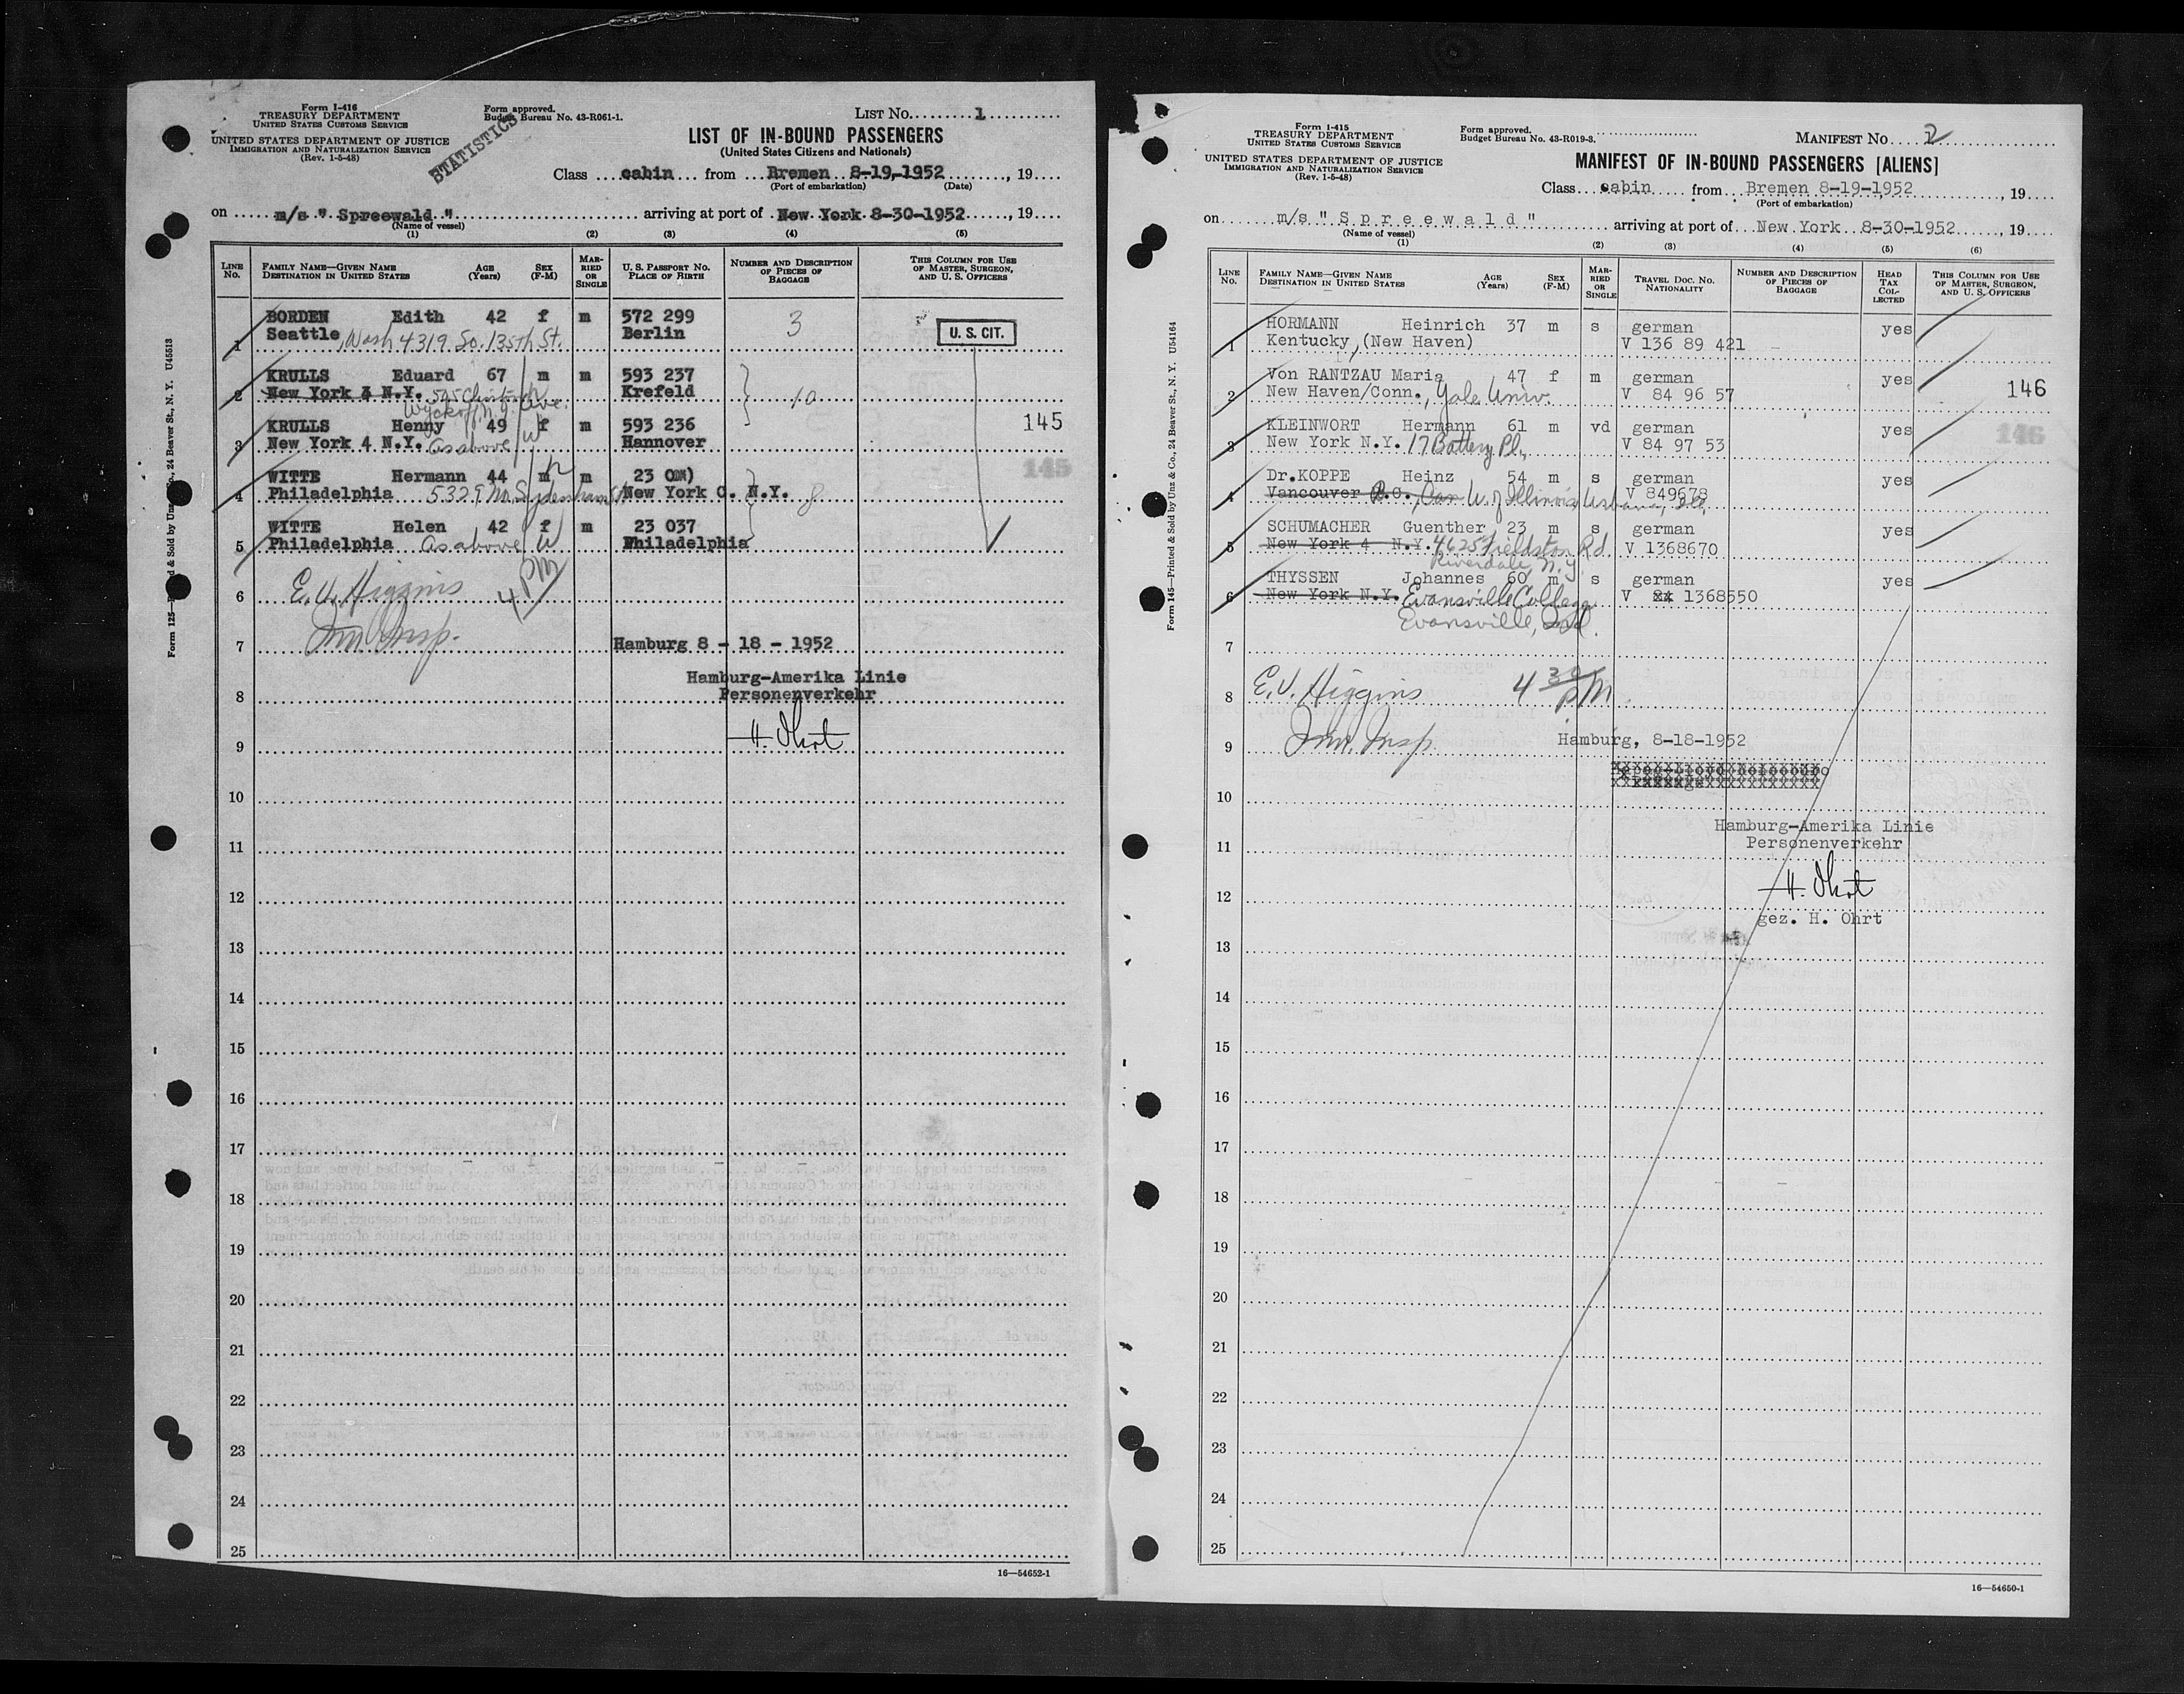 Form I-416
TREASURY DEPARTMENT
UNITED STATES CUSTOMS SERVICE
UNITED STATES DEPARTMENT OF JUSTICE
IMMIGRATION AND NATURALIZATION SERVICE
(Rev. 1-5-48)
Form approved.
Budget Bureau No. 43-R061-1.
STATISTICS
LIST No. 1
LIST OF IN-BOUND PASSENGERS
(United States Citizens and Nationals)
Class cabin from Bremen 8-19-1952, 19
(Port of embarkation) (Date)
on m/s " Spreewald " arriving at port of New York 8-30-1952, 19
(Name of vessel)
(1) (2) (3) (4) (5)
LINE No. FAMILY NAME—GIVEN NAME DESTINATION IN UNITED STATES AGE (Years) SEX (F-M) MARRIED OR SINGLE U. S. PASSPORT NO. PLACE OF BIRTH NUMBER AND DESCRIPTION OF PIECES OF BAGGAGE THIS COLUMN FOR USE OF MASTER, SURGEON, AND U. S. OFFICERS
BORDEN Edith 42 f m 572 299 3
1 Seattle, Wash 4319 So. 135th St. Berlin U. S. CIT.
KRULLS Eduard 67 m m 593 237
2 New York 3 N.Y. 525 Clinton Ave. Krefeld 10
Wyckoff N.J.
KRULLS Henny 49 f m 593 236 145
3 New York 4 N.Y. as above W Hannover
WITTE Hermann 44 m m 23 145
4 Philadelphia 5329 No. Sydenham St New York C. N.Y. 8
WITTE Helen 42 f m 23 037
5 Philadelphia as above W Philadelphia
6 E.V. Higgins 4 PM
Imm. Insp.
7 Hamburg 8 - 18 - 1952
Hamburg-Amerika Linie
8 Personenverkehr
9 H. Ohrt
10
11
12
13
14
15
16
17
18
19
20
21
22
23
24
25
16—54652-1
Form 125—Printed & Sold by Unz & Co., 24 Beaver St., N. Y. U45513
Form I-415
TREASURY DEPARTMENT
UNITED STATES CUSTOMS SERVICE
UNITED STATES DEPARTMENT OF JUSTICE
IMMIGRATION AND NATURALIZATION SERVICE
(Rev. 1-5-48)
Form approved.
Budget Bureau No. 43-R019-3.
MANIFEST No. 2
MANIFEST OF IN-BOUND PASSENGERS [ALIENS]
Class cabin from Bremen 8-19-1952, 19
(Port of embarkation)
on m/s " S p r e e w a l d " arriving at port of New York 8-30-1952, 19
(Name of vessel)
(1) (2) (3) (4) (5) (6)
LINE No. FAMILY NAME—GIVEN NAME DESTINATION IN UNITED STATES AGE (Years) SEX (F-M) MARRIED OR SINGLE TRAVEL DOC. NO. NATIONALITY NUMBER AND DESCRIPTION OF PIECES OF BAGGAGE HEAD TAX COLLECTED THIS COLUMN FOR USE OF MASTER, SURGEON, AND U. S. OFFICERS
HORMANN Heinrich 37 m s german yes
1 Kentucky, (New Haven) V 136 89 421
Von RANTZAU Maria 47 f m german yes 146
2 New Haven/Conn., Yale Univ. V 84 96 57
KLEINWORT Hermann 61 m vd german yes 146
3 New York N.Y. 17 Battery Pl. V 84 97 53
Dr.KOPPE Heinz 54 m s german yes
4 Vancouver B.C., Can U. of Illinois, Urbana, Ill. V 849678
SCHUMACHER Guenther 23 m s german yes
5 New York 4 N.Y. 4625 Fieldston Rd. V 1368670
Riverdale, N.Y.
THYSSEN Johannes 60 m s german yes
6 New York N.Y. Evansville College V 1368550
Evansville, Ind.
7
8 E.V. Higgins 4 30 PM
9 Imm. Insp. Hamburg, 8-18-1952
10
Hamburg-Amerika Linie
11 Personenverkehr
12 H. Ohrt
gez. H. Ohrt
13
14
15
16
17
18
19
20
21
22
23
24
25
16—54650-1
Form 145—Printed & Sold by Unz & Co., 24 Beaver St., N. Y. U54164